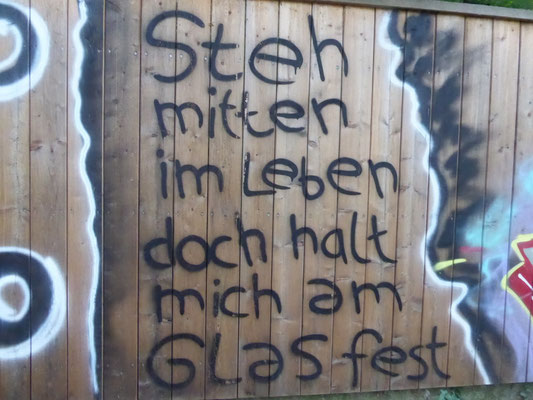 Steh
mitten
im Leben
doch halt
mich am
Glas fest